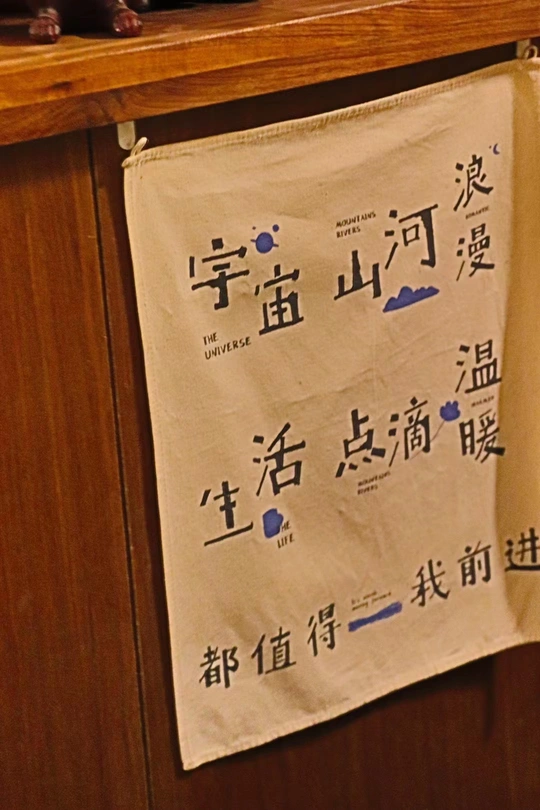 宇宙
THE
UNIVERSE
MOUNTAINS
RIVERS
山河
浪漫
ROMANTIC
生活
THE
LIFE
点滴
MOUNTAINS
RIVERS
温暖
都值得
我前进